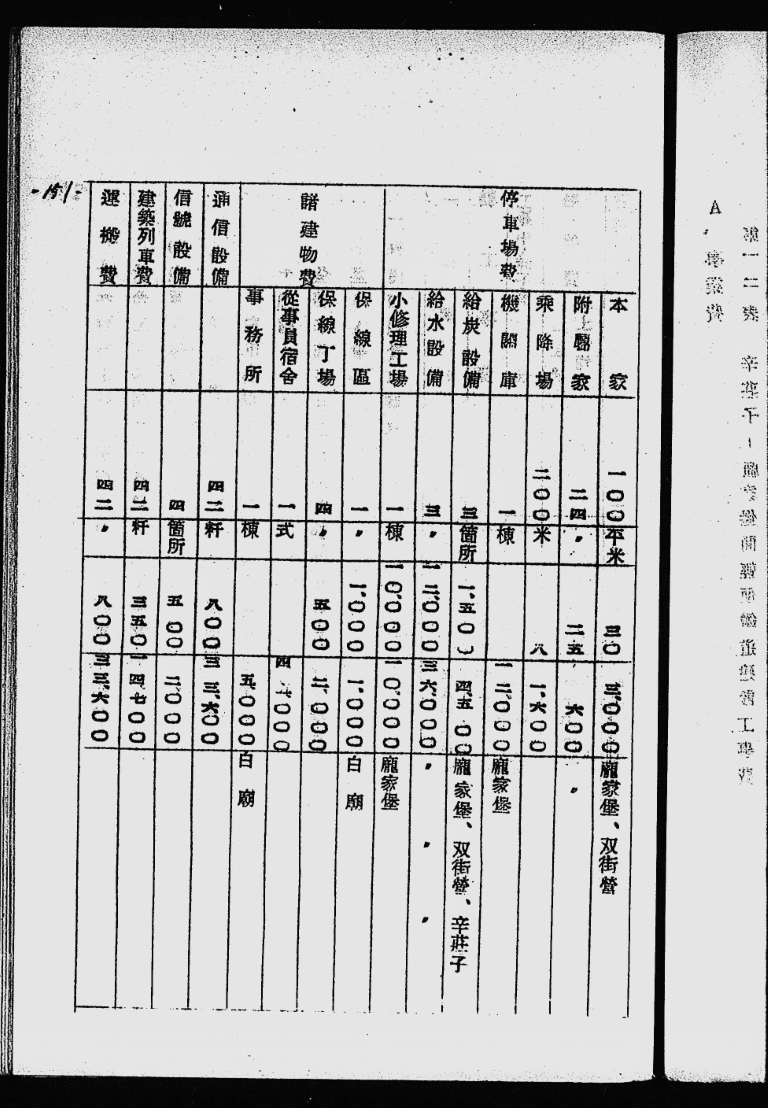 停車場費
本家 一〇〇平米 三〇 三、〇〇〇 龐家堡、双街營
附屬家 二四〃 二五 六〇〇 〃
乘降場 二〇〇米 八 一、六〇〇
機關庫 一棟 一二、〇〇〇 龐家堡
給炭設備 三箇所 一、五〇〇 四、五〇〇 龐家堡、双街營、辛莊子
給水設備 三〃 一二、〇〇〇 三六、〇〇〇 〃 〃 〃
小修理工場 一棟 一〇、〇〇〇 一〇、〇〇〇 龐家堡
諸建物費
保線區 一〃 一、〇〇〇 一、〇〇〇 白廟
保線丁場 四〃 五〇〇 二、〇〇〇
從事員宿舍 一式 四、〇〇〇
事務所 一棟 五、〇〇〇 白廟
通信設備 四二粁 八〇〇 三三、六〇〇
信號設備 四箇所 五〇〇 二、〇〇〇
建築列車費 四二粁 三五〇 一四、七〇〇
運搬費 四二〃 八〇〇 三三、六〇〇
-151-